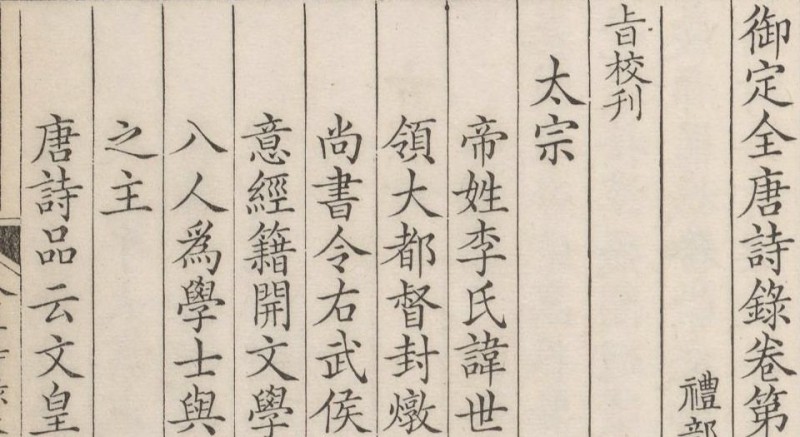 御定全唐詩錄卷第
禮部
旨校刊
太宗
帝姓李氏諱世
領大都督封燉
尚書令右武侯
意經籍開文學
八人爲學士與
之主
唐詩品云文皇